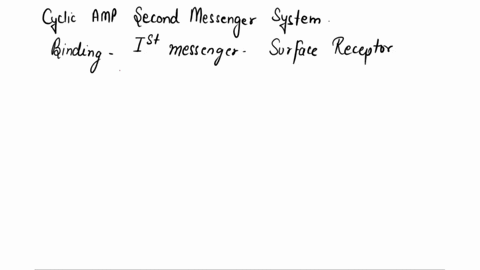 Cyclic AMP Second Messenger System.
Binding - Ist messenger. Surface Receptor